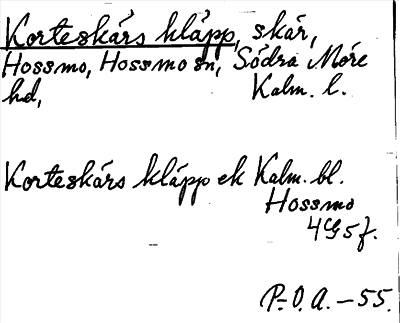 Korteskärs kläpp, skär,
Hossmo, Hossmo sn, Södra Möre
hd, Kalm. l.
Korteskärs kläpp ek Kalm. bl.
Hossmo
4G5f.
P.O.A. - 55.